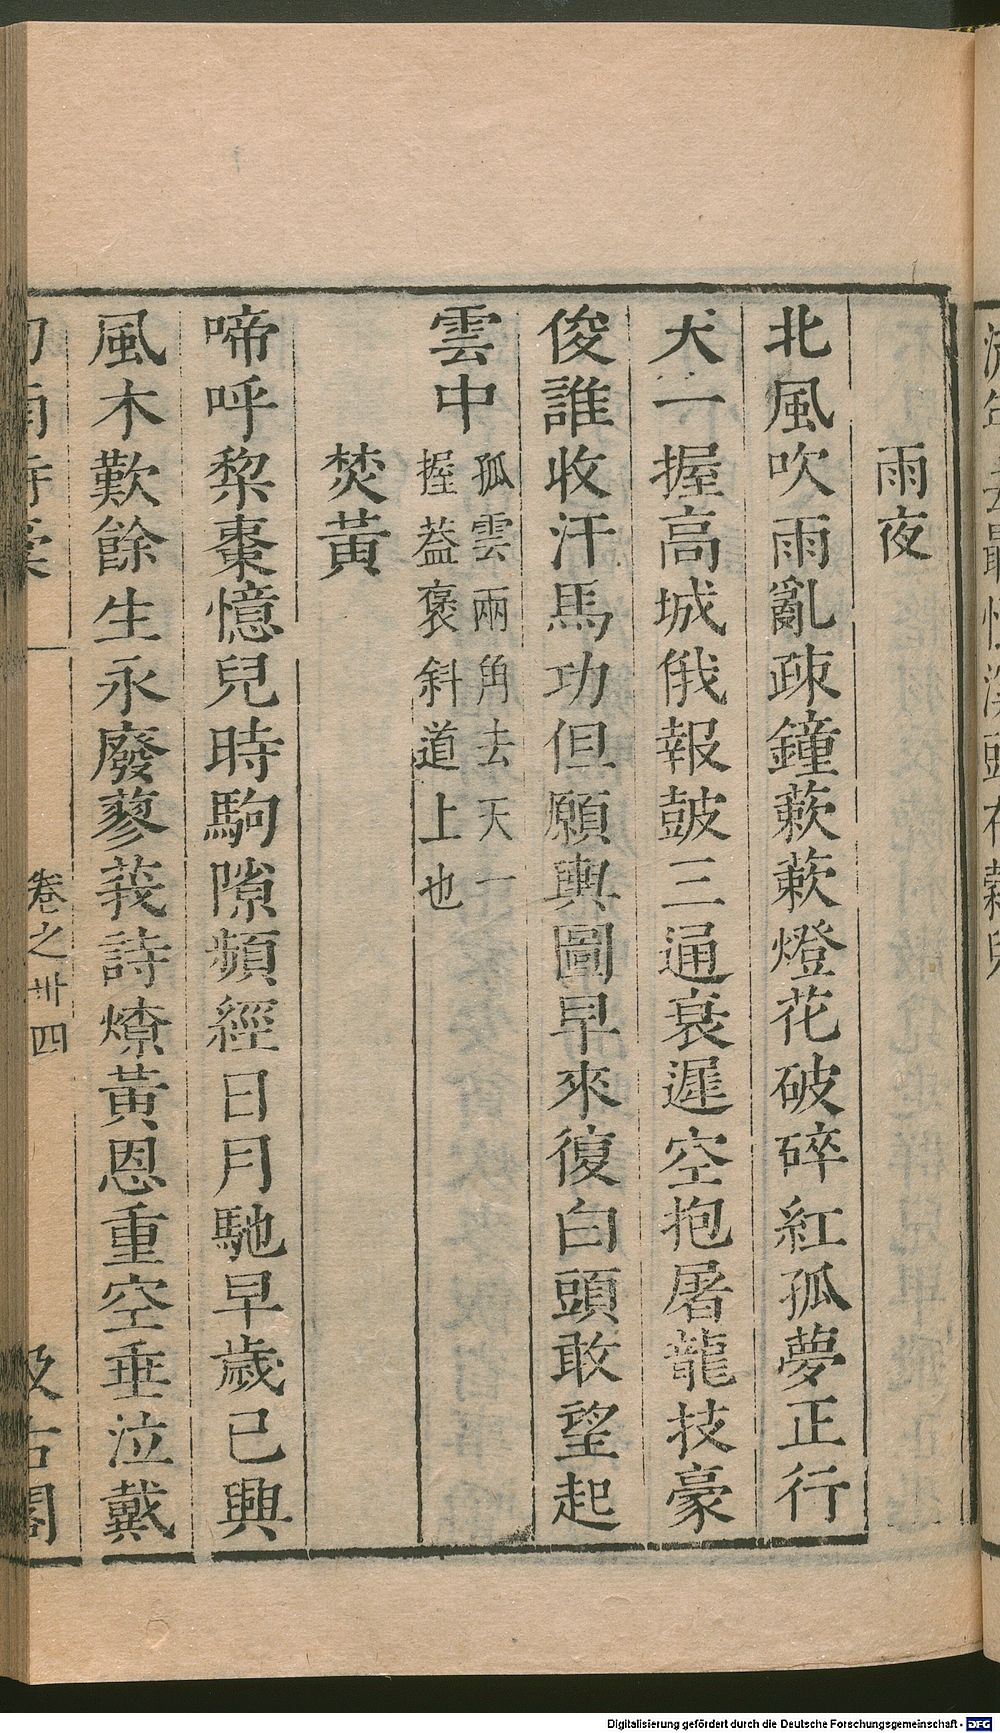 雨夜
北風吹雨亂疎鐘蔌蔌燈花破碎紅孤夢正行
天一握高城俄報鼓三通衰遲空抱屠龍技豪
俊誰收汗馬功但願輿圖早來復白頭敢望起
雲中孤雲兩角去天一
握葢褒斜道上也
焚黃
啼呼棃棗憶兒時駒隙頻經日月馳早歲已興
風木歎餘生永廢蓼莪詩燎黃恩重空垂泣戴
卷之卅四
汲古閣
Digitalisierung gefördert durch die Deutsche Forschungsgemeinschaft - DFG